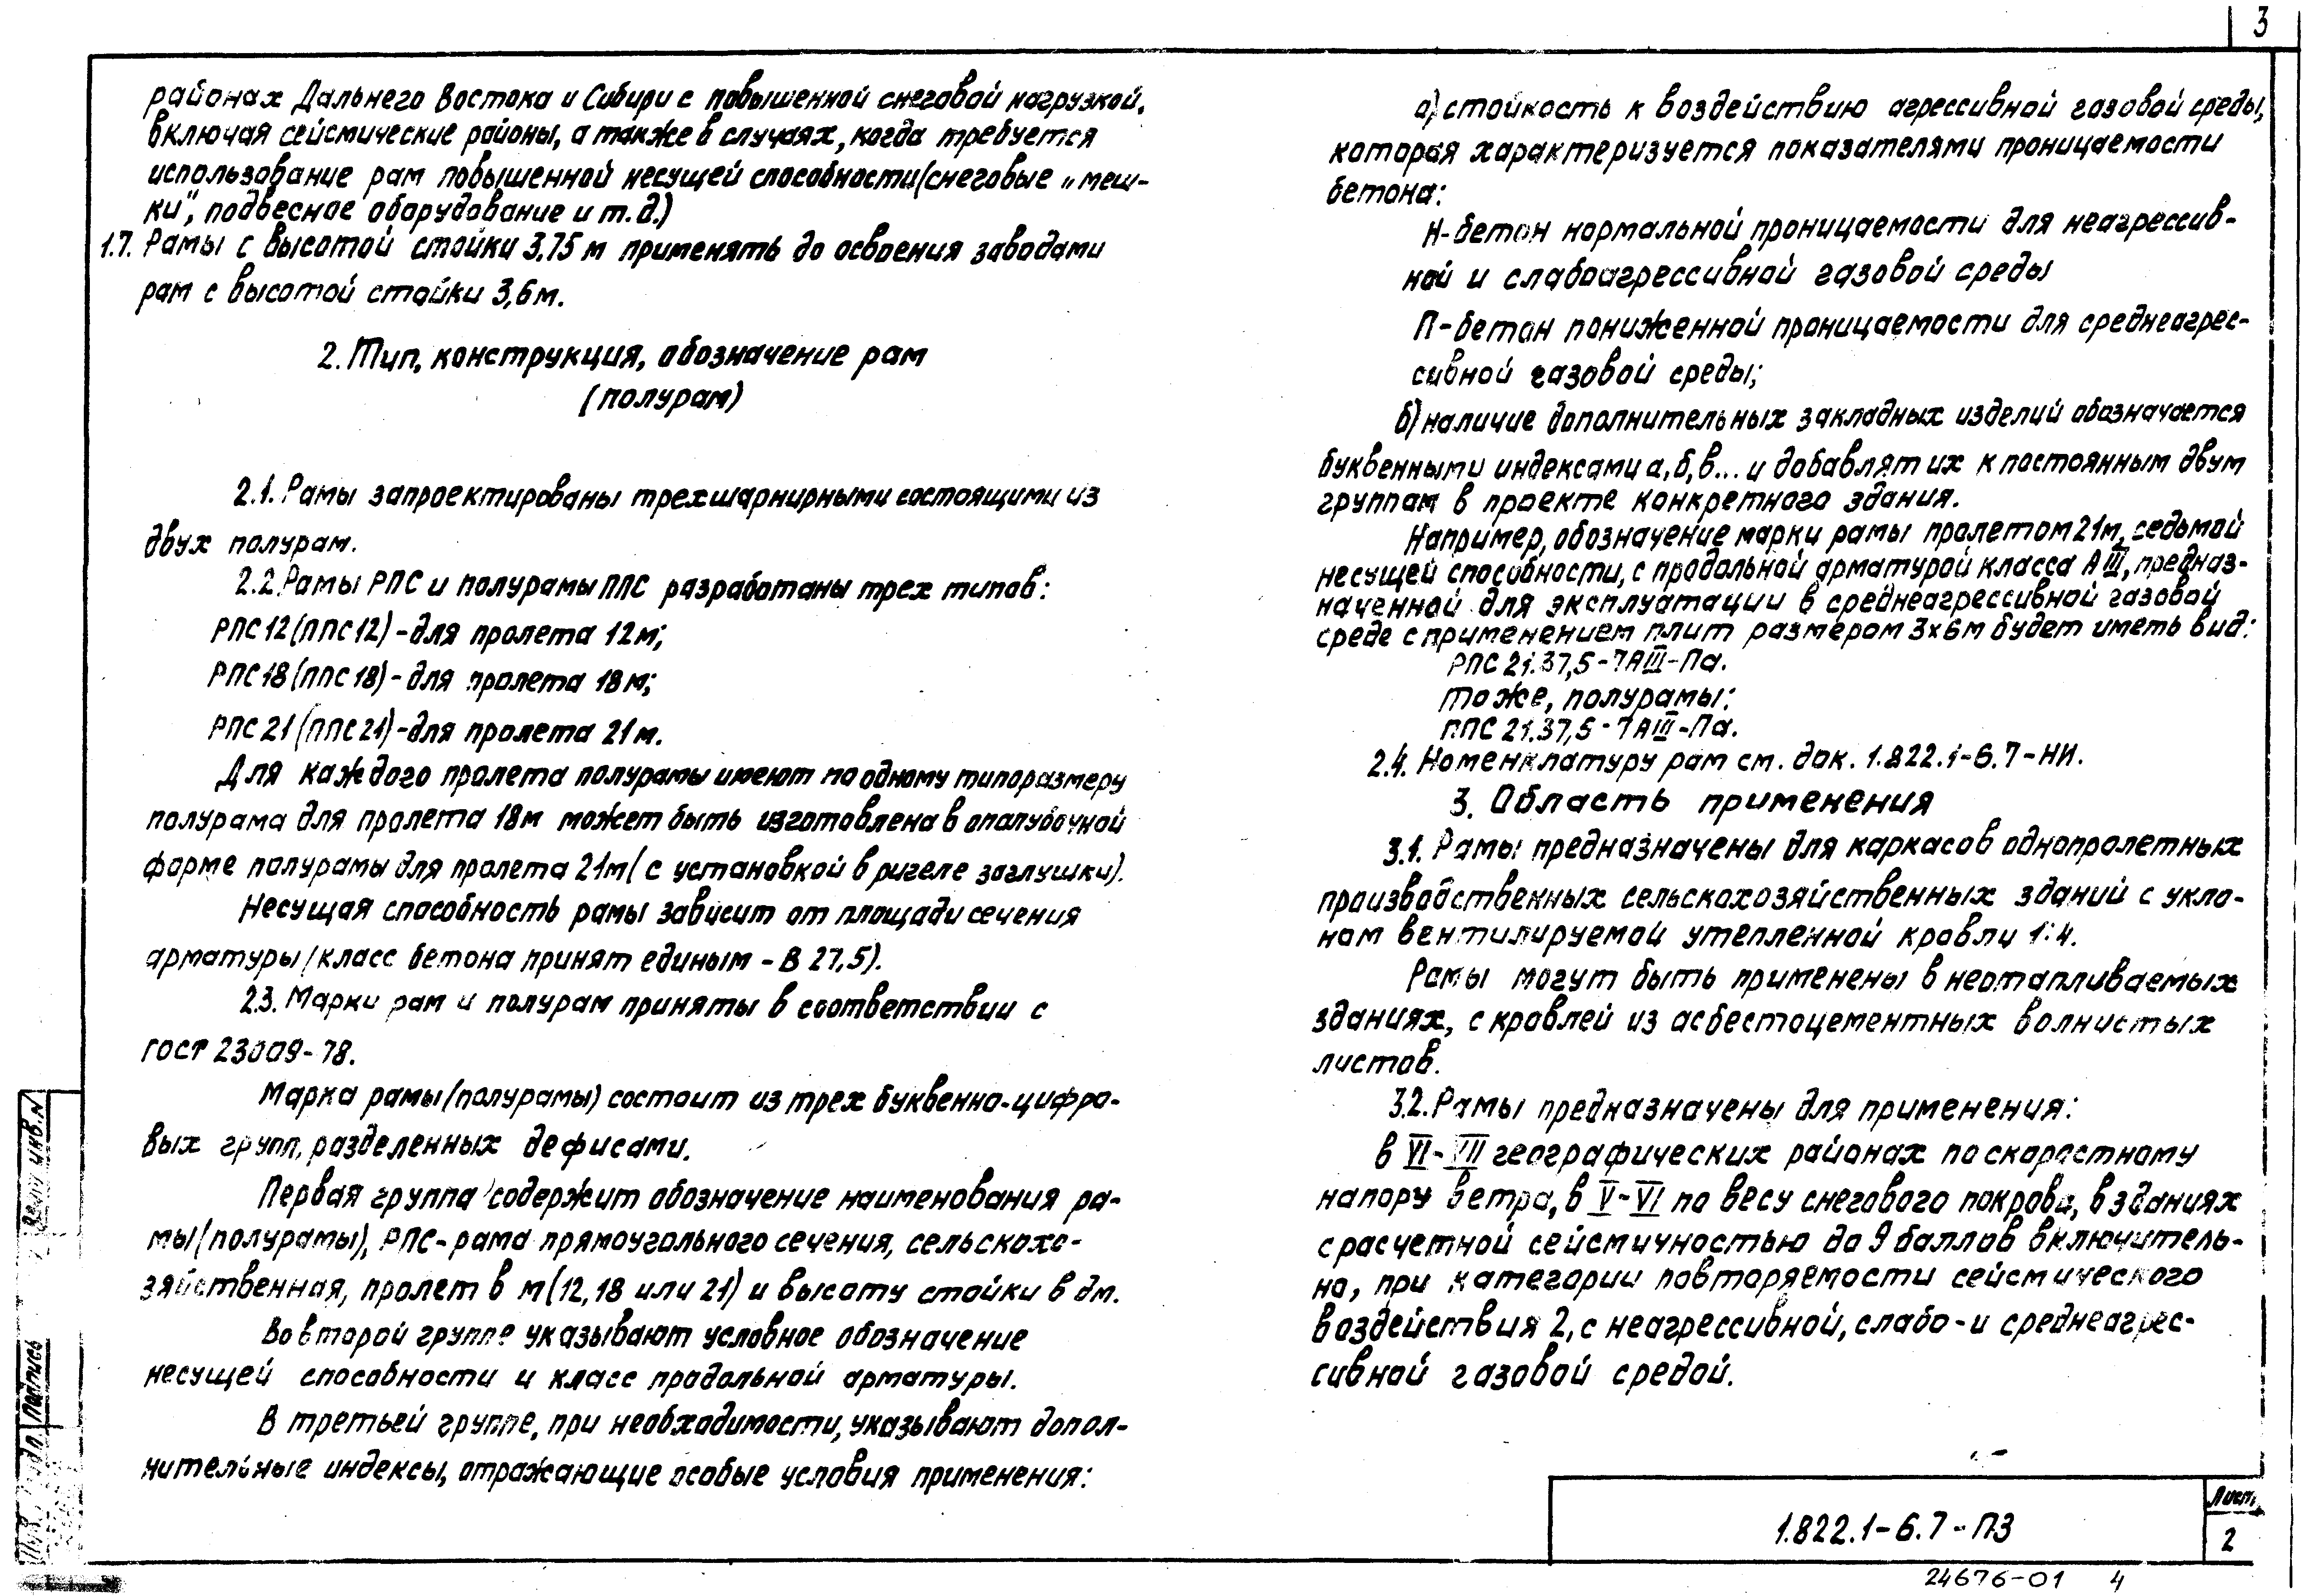 3
районах Дальнего Востока и Сибири с повышенной снеговой нагрузкой,
включая сейсмические районы, а также в случаях, когда требуется
использование рам повышенной несущей способности (снеговые „меш-
ки", подвесное оборудование и т.д.)
1.7. Рамы с высотой стойки 3,75 м применять до освоения заводами
рам с высотой стойки 3,6 м.
2. Тип, конструкция, обозначение рам
(полурам)
2.1. Рамы запроектированы трехшарнирными состоящими из
двух полурам.
2.2. Рамы РПС и полурамы ППС разработаны трех типов:
РПС12 (ППС12) - для пролета 12м;
РПС18 (ППС18) - для пролета 18м;
РПС21 (ППС21) - для пролета 21м.
Для каждого пролета полурамы имеют по одному типоразмеру
полурама для пролета 18м может быть изготовлена в опалубочной
форме полурамы для пролета 21м (с установкой в ригеле заглушки).
Несущая способность рамы зависит от площади сечения
арматуры (класс бетона принят единым - В 27,5).
2.3. Марки рам и полурам приняты в соответствии с
ГОСТ 23009-78.
Марка рамы (полурамы) состоит из трех буквенно-цифро-
вых групп, разделенных дефисами.
Первая группа содержит обозначение наименования ра-
мы (полурамы), РПС - рама прямоугольного сечения, сельскохо-
зяйственная, пролет в м (12, 18 или 21) и высоту стойки в дм.
Во второй группе указывают условное обозначение
несущей способности и класс продольной арматуры.
В третьей группе, при необходимости, указывают допол-
нительные индексы, отражающие особые условия применения:
а) стойкость к воздействию агрессивной газовой среды,
которая характеризуется показателями проницаемости
бетона:
Н - бетон нормальной проницаемости для неагрессив-
ной и слабоагрессивной газовой среды
П - бетон пониженной проницаемости для среднеагрес-
сивной газовой среды;
б) наличие дополнительных закладных изделий обозначается
буквенными индексами а, б, в... и добавлят их к постоянным двум
группам в проекте конкретного здания.
Например, обозначение марки рамы пролетом 21м, седьмой
несущей способности, с продольной арматурой класса А III, предназ-
наченной для эксплуатации в среднеагрессивной газовой
среде с применением плит размером 3х6м будет иметь вид:
РПС 21.37,5-7АIII-Па.
то же, полурамы:
ППС 21.37,5-7АIII-Па.
2.4. Номенклатуру рам см. док. 1.822.1-6.7-НИ.
3. Область применения
3.1. Рамы предназначены для каркасов однопролетных
производственных сельскохозяйственных зданий с укло-
ном вентилируемой утепленной кровли 1:4.
Рамы могут быть применены в неотапливаемых
зданиях, с кровлей из асбестоцементных волнистых
листов.
3.2. Рамы предназначены для применения:
в VI-VII географических районах по скоростному
напору ветра, в V-VI по весу снегового покрова, в зданиях
с расчетной сейсмичностью до 9 баллов включитель-
но, при категории повторяемости сейсмического
воздействия 2, с неагрессивной, слабо- и среднеагрес-
сивной газовой средой.
инв. N
Подпись
1.822.1-6.7-ПЗ
Лист
2
24676-01 4